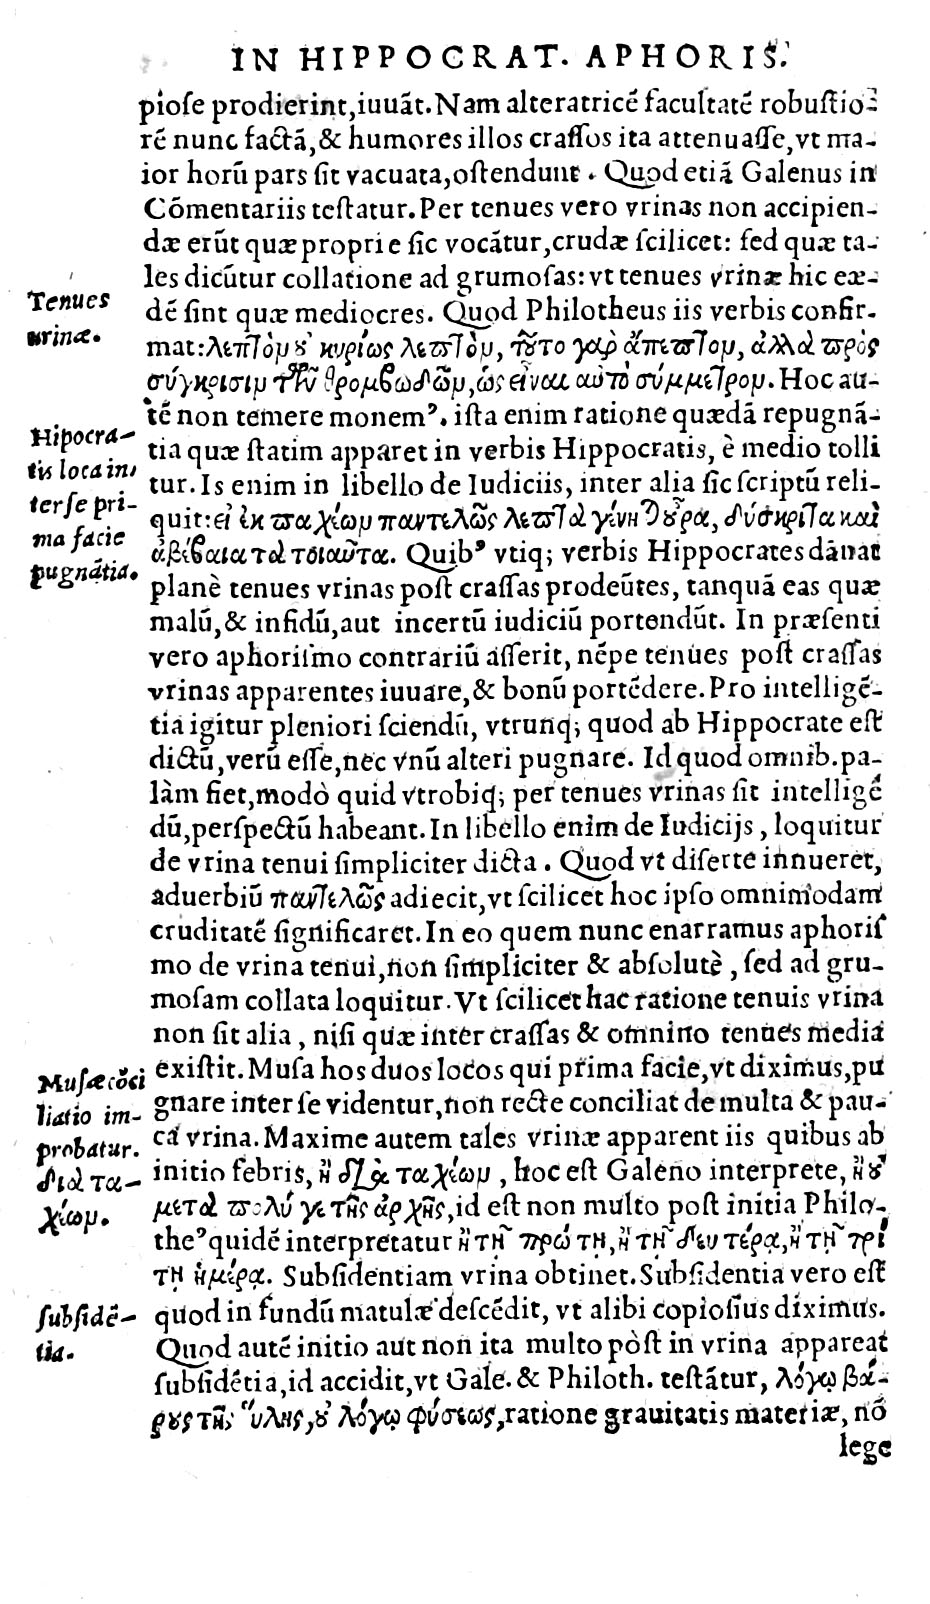 IN HIPPOCRAT. APHORIS.
piose prodierint,iuuãt. Nam alteratricẽ facultatẽ robustio-
rẽ nunc factã,& humores illos crassos ita attenuasse,vt ma-
ior horũ pars sit vacuata,ostendunt. Quod etiã Galenus in
Cõmentariis testatur. Per tenues vero vrinas non accipien-
dæ erũt quæ proprie sic vocãtur,crudæ scilicet: sed quæ ta-
les dicũtur collatione ad grumosas: vt tenues vrinæ hic eæ-
Tenues
vrinæ.
dẽ sint quæ mediocres. Quod Philotheus iis verbis confir-
mat: λεπτὸμ οὐ κυρίως λεπτὸμ, τοῦτο γαρ ἄπεπτομ, ἀλλὰ πρὸς
σύγκρισιμ τῶν θρομβωδῶμ, ὡς εἶναι αὐτὸ σύμμετρομ. Hoc au-
tẽ non temere monem’. ista enim ratione quædã repugnã-
Hipocra-
tis loca in
terse pri-
ma facie
pugnãtia.
tia quæ statim apparet in verbis Hippocratis, è medio tolli
tur. Is enim in libello de Iudiciis, inter alia sic scriptũ reli-
quit: εἰ ἐκ παχέωμ παντελῶς λεπτὰ γένηται οὖρα, δύσκριτα καὶ
ἀβέβαια τὰ τοιαῦτα. Quib’ vtiq; verbis Hippocrates dãnat
planè tenues vrinas post crassas prodeũtes, tanquã eas quæ
malũ,& infidũ,aut incertũ iudiciũ portendũt. In præsenti
vero aphorismo contrariũ asserit, nẽpe tenues post crassas
vrinas apparentes iuuare,& bonũ portẽdere. Pro intelligẽ-
tia igitur pleniori sciendũ, vtrunq; quod ab Hippocrate est
dictũ,verũ esse,nec vnũ alteri pugnare. Id quod omnib.pa-
làm fiet,modò quid vtrobiq; per tenues vrinas sit intelligẽ
dũ,perspectũ habeant. In libello enim de Iudicijs, loquitur
de vrina tenui simpliciter dicta. Quod vt diserte innueret,
aduerbiũ παντελῶς adiecit,vt scilicet hoc ipso omnimodam
cruditatẽ significaret. In eo quem nunc enarramus aphoris
mo de vrina tenui,non simpliciter & absolutè, sed ad gru-
mosam collata loquitur. Vt scilicet hac ratione tenuis vrina
non sit alia, nisi quæ inter crassas & omnino tenues media
existit. Musa hos duos locos qui prima facie,vt diximus,pu
Musæ cõci
liatio im-
probatur.
gnare inter se videntur,non recte conciliat de multa & pau-
ca vrina. Maxime autem tales vrinæ apparent iis quibus ab
initio febris, ἢ διὰ ταχέωμ, hoc est Galeno interprete, ἢ οὐ
διὰ τα-
χέωμ.
μετὰ πολύ γε τῆς ἀρχῆς, id est non multo post initia Philo-
the’quidẽ interpretatur ἢ τῇ πρώτῃ, ἢ τῇ δευτέρᾳ, ἢ τῇ τρί
τῃ ἡμέρᾳ. Subsidentiam vrina obtinet. Subsidentia vero est
subsidẽ-
tia.
quod in fundũ matulæ descẽdit, vt alibi copiosius diximus.
Quod autẽ initio aut non ita multo pòst in vrina appareat
subsidẽtia,id accidit,vt Gale. & Philoth. testãtur, λόγῳ βά-
ρους τῆς ὕλης, οὐ λόγῳ φύσεως, ratione grauitatis materiæ, nõ
lege